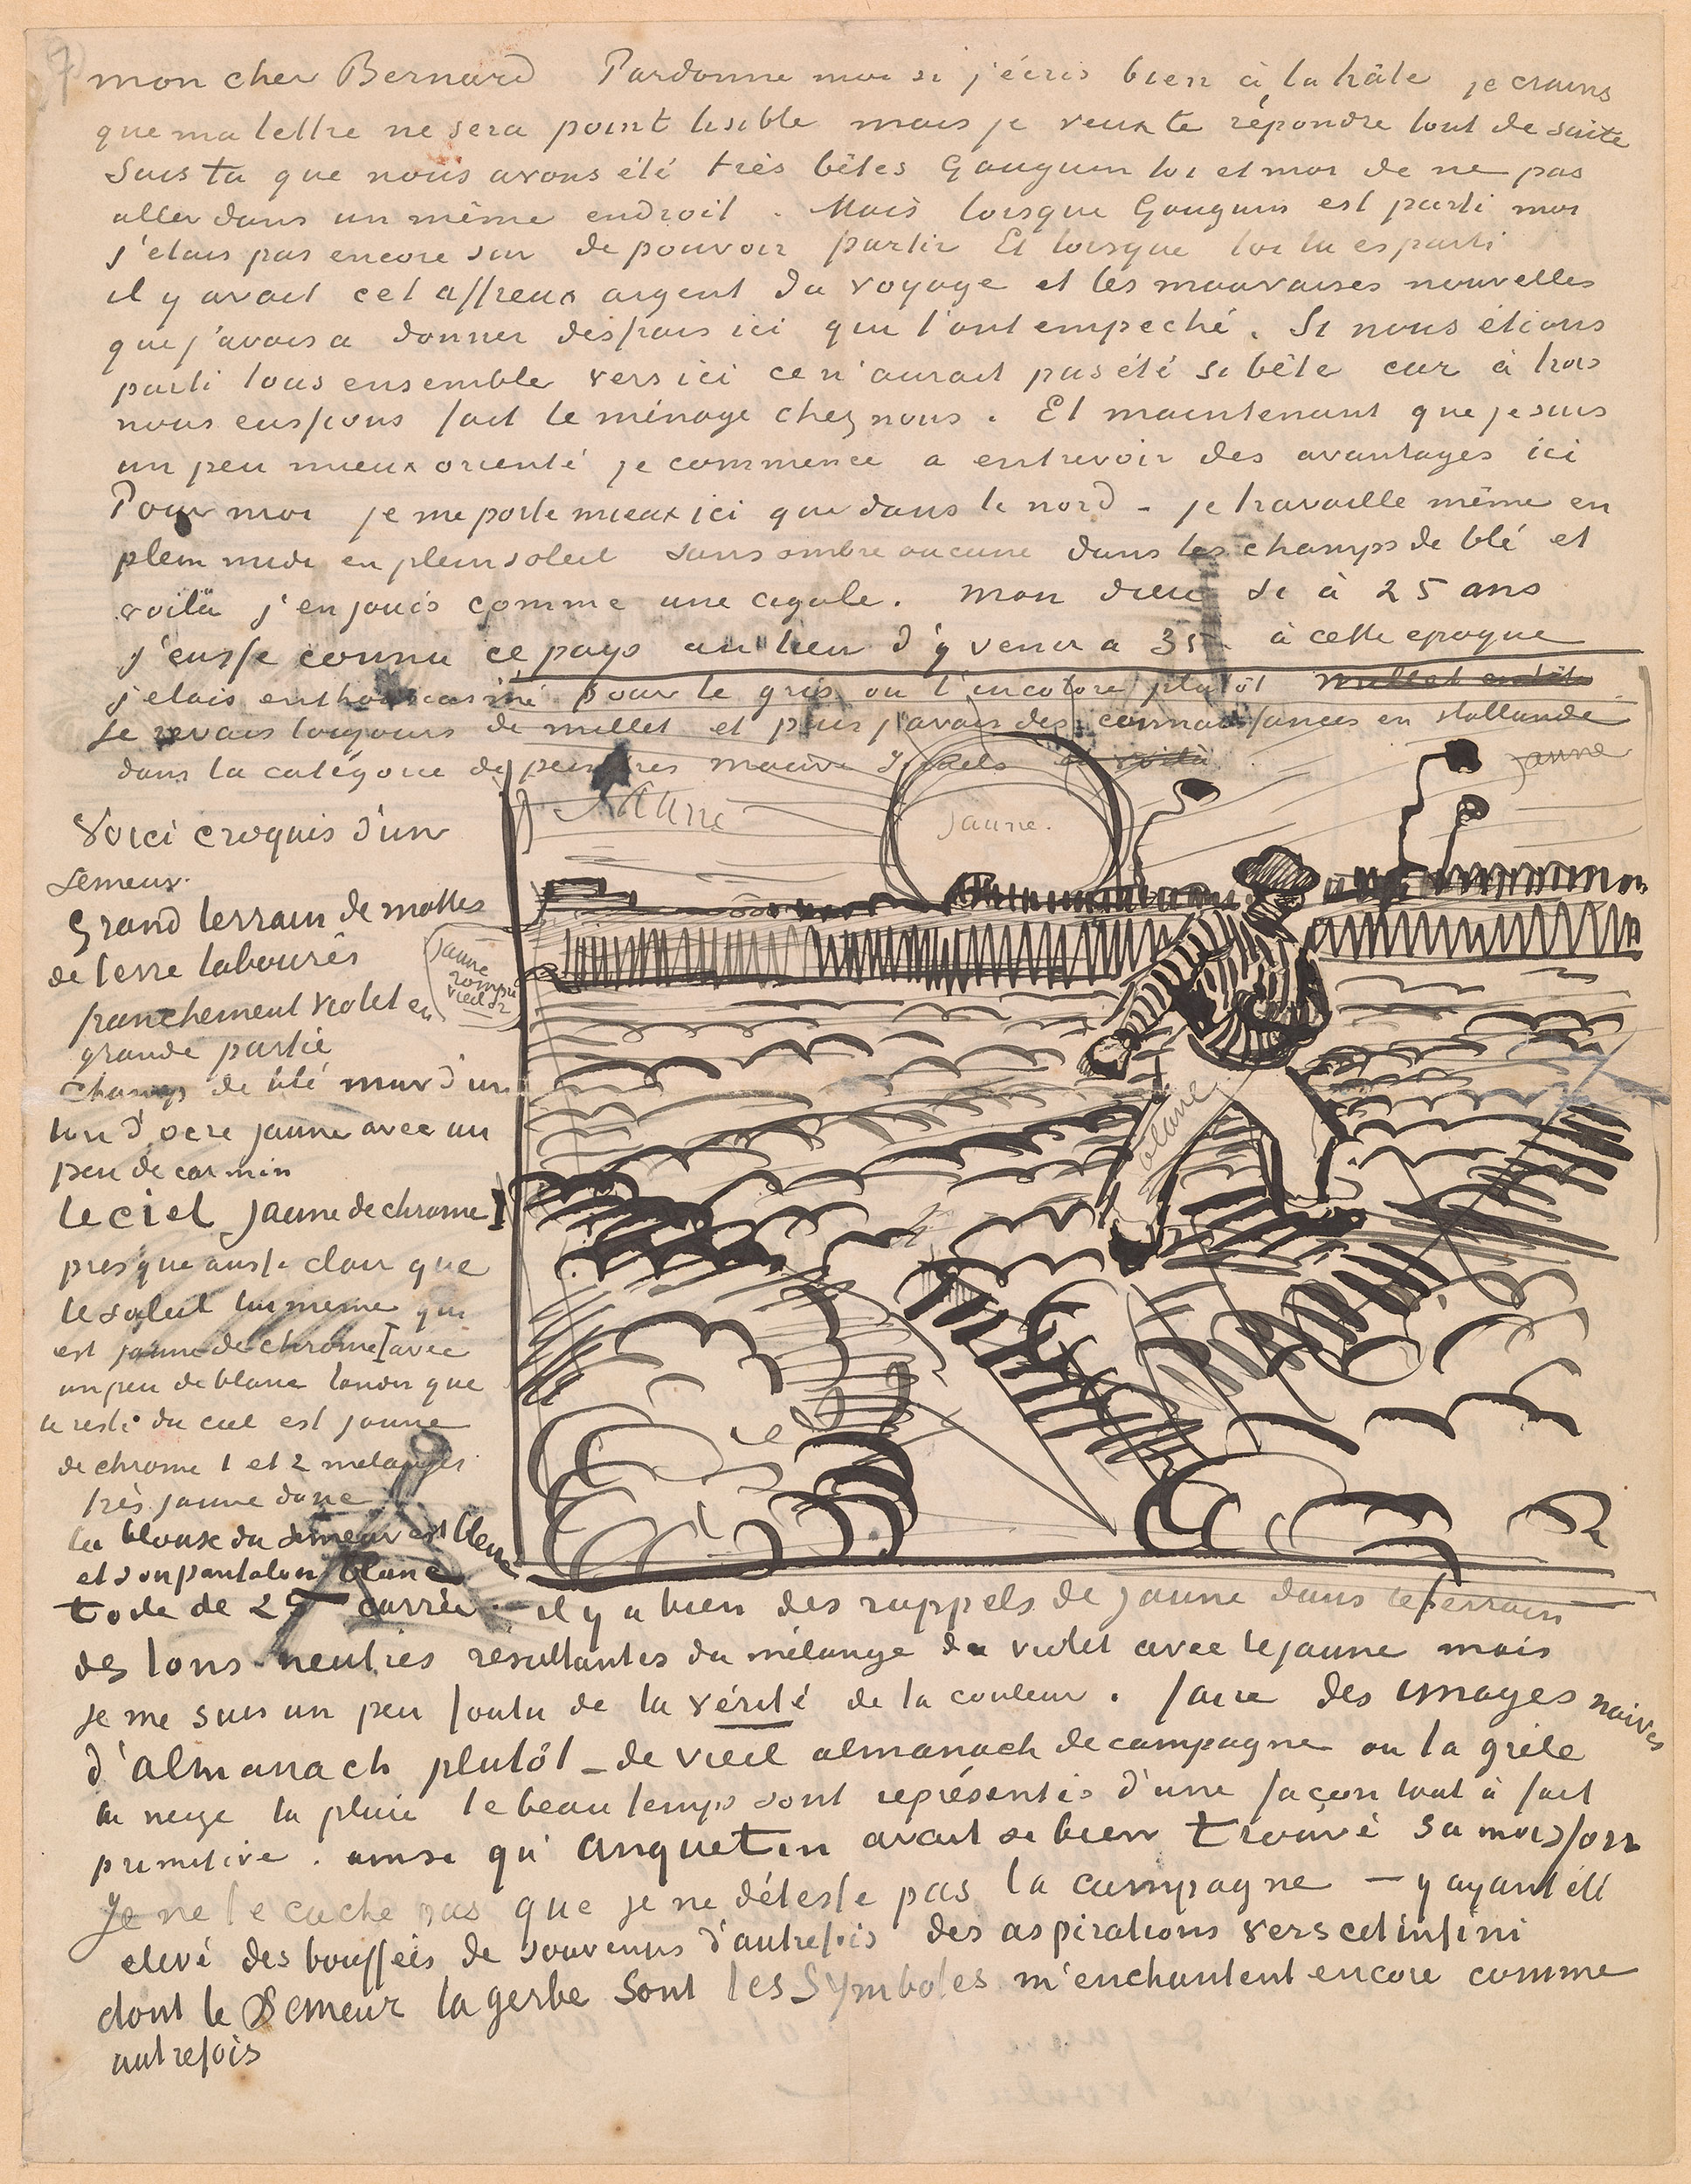 mon cher Bernard Pardonne moi si j'écris bien à la hâte je crains
que ma lettre ne sera point lisible mais je veux te répondre tout de suite
Sais tu que nous avons été très bêtes Gauguin toi et moi de ne pas
aller dans un même endroit. Mais lorsque Gauguin est parti moi
j'étais pas encore sûr de pouvoir partir Et lorsque toi tu es parti
il y avait cet affreux argent du voyage et les mauvaises nouvelles
que j'avais a donner des frais ici qui l'ont empeché. Si nous étions
parti tous ensemble vers ici ce n'aurait pas été si bête car à trois
nous eussions fait le ménage chez nous. Et maintenant que je suis
un peu mieux orienté je commence a entrevoir des avantages ici
Pour moi je me porte mieux ici que dans le nord - je travaille même en
plein midi en plein soleil sans ombre aucune dans les champs de blé et
voilà j'en jouis comme une cigale. Mon dieu si à 25 ans
j'eusse connu ce pays au lieu d'y venir a 35 - à cette epoque
j'etais enthousiasmé pour le gris ou l'incolore plutôt
je revais toujours de millet et puis j'avais des connaissances en Hollande
dans la catégorie de peintres mauve Israels
jaune
Jaune
Jaune.
Voici croquis d'un
semeur.
Grand terrain de mottes
de terre labourés
franchement violet en
grande partie
Champ de blé mur d'un
ton d'ocre jaune avec un
peu de carmin
jaune
rompu
le ciel jaune de chrome 1
presque aussi clair que
le soleil lui meme qui
est jaune de chrome 1 avec
un peu de blanc tandis que
le reste du ciel est jaune
de chrome 1 et 2 melangés
très jaune donc
la blouse du semeur est bleue
et son pantalon blanc
blanc
toile de 25 carrée - il y a bien des rappels de jaune dans le terrain
des tons neutres résultantes du mélange du violet avec le jaune mais
je me suis un peu foutu de la vérité de la couleur. faire des images naives
d'almanach plutôt - de vieil almanach de campagne ou la grèle
la neige la pluie le beau temps sont représentés d'une façon tout à fait
primitive. ainsi qu'Anquetin avait si bien trouvé sa moisson
Je ne te cache pas que je ne déteste pas la campagne - y ayant été
elevé des bouffées de souvenirs d'autrefois des aspirations vers cet infini
dont le Semeur la gerbe sont les Symboles m'enchantent encore comme
autrefois